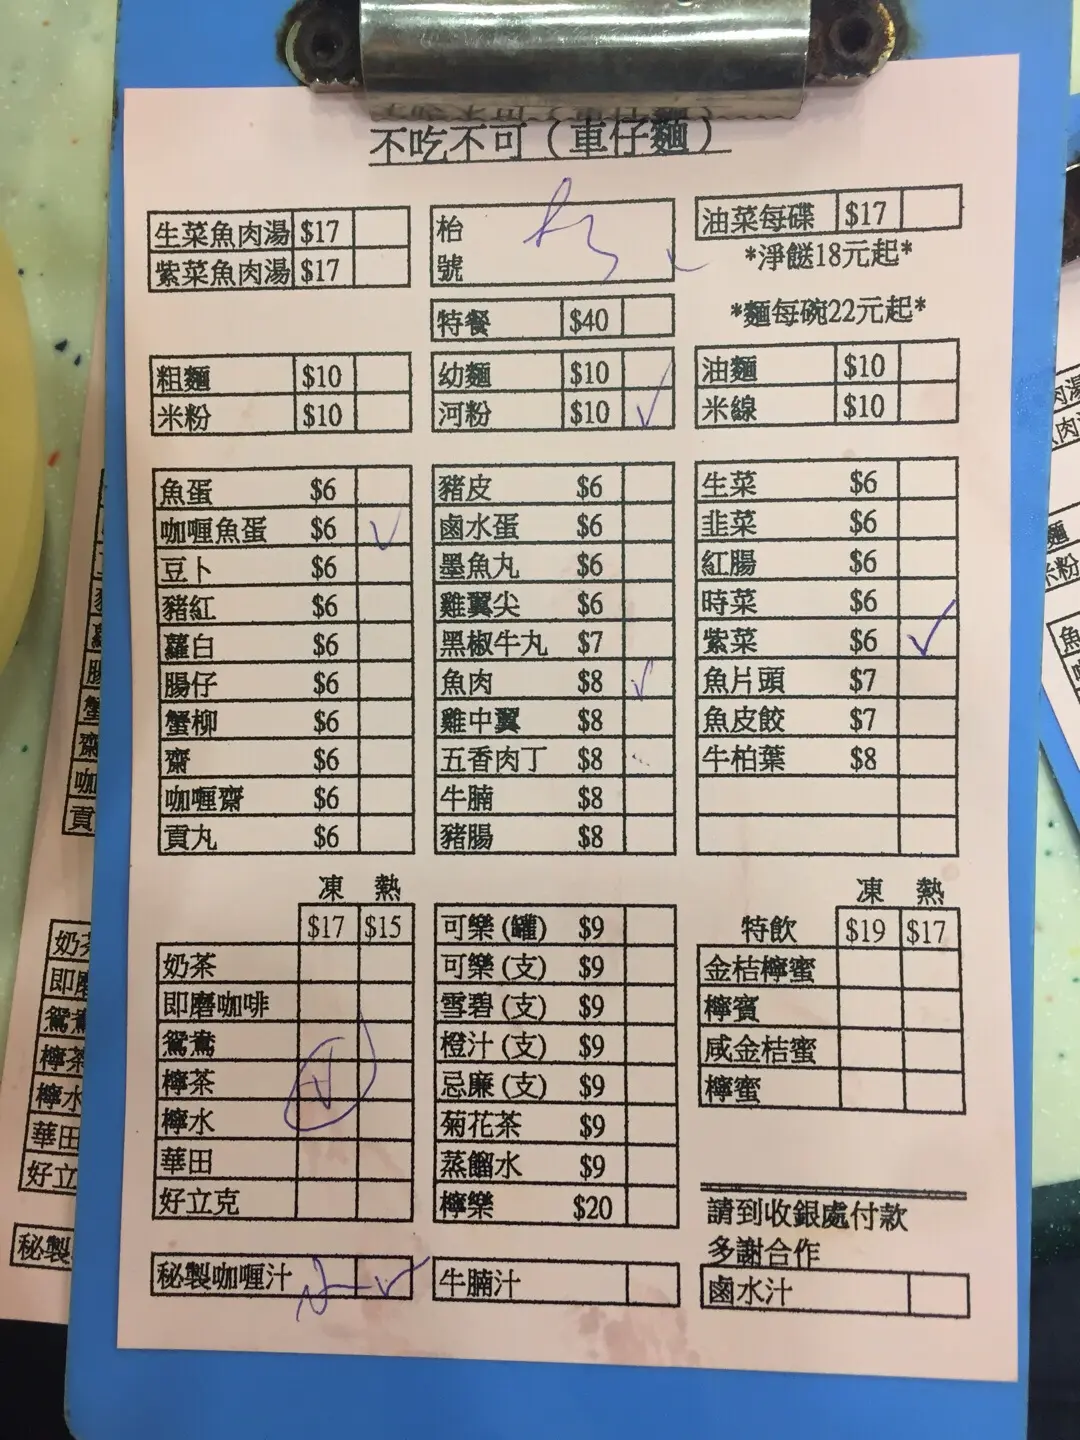 不吃不可（車仔麵）
生菜魚肉湯 $17
紫菜魚肉湯 $17
枱
號
油菜每碟 $17
*淨餸18元起*
特餐 $40
*麵每碗22元起*
粗麵 $10
米粉 $10
幼麵 $10
河粉 $10
油麵 $10
米線 $10
魚蛋 $6
咖喱魚蛋 $6
豆卜 $6
豬紅 $6
蘿白 $6
腸仔 $6
蟹柳 $6
齋 $6
咖喱齋 $6
貢丸 $6
豬皮 $6
鹵水蛋 $6
墨魚丸 $6
雞翼尖 $6
黑椒牛丸 $7
魚肉 $8
雞中翼 $8
五香肉丁 $8
牛腩 $8
豬腸 $8
生菜 $6
韭菜 $6
紅腸 $6
時菜 $6
紫菜 $6
魚片頭 $7
魚皮餃 $7
牛柏葉 $8
凍 熱
$17 $15
奶茶
即磨咖啡
鴛鴦
檸茶
檸水
華田
好立克
可樂 (罐) $9
可樂 (支) $9
雪碧 (支) $9
橙汁 (支) $9
忌廉 (支) $9
菊花茶 $9
蒸餾水 $9
檸樂 $20
凍 熱
特飲 $19 $17
金桔檸蜜
檸賓
咸金桔蜜
檸蜜
請到收銀處付款
多謝合作
秘製咖喱汁
牛腩汁
鹵水汁
奶茶
即磨
鴛鴦
檸茶
檸水
華田
好立
秘製